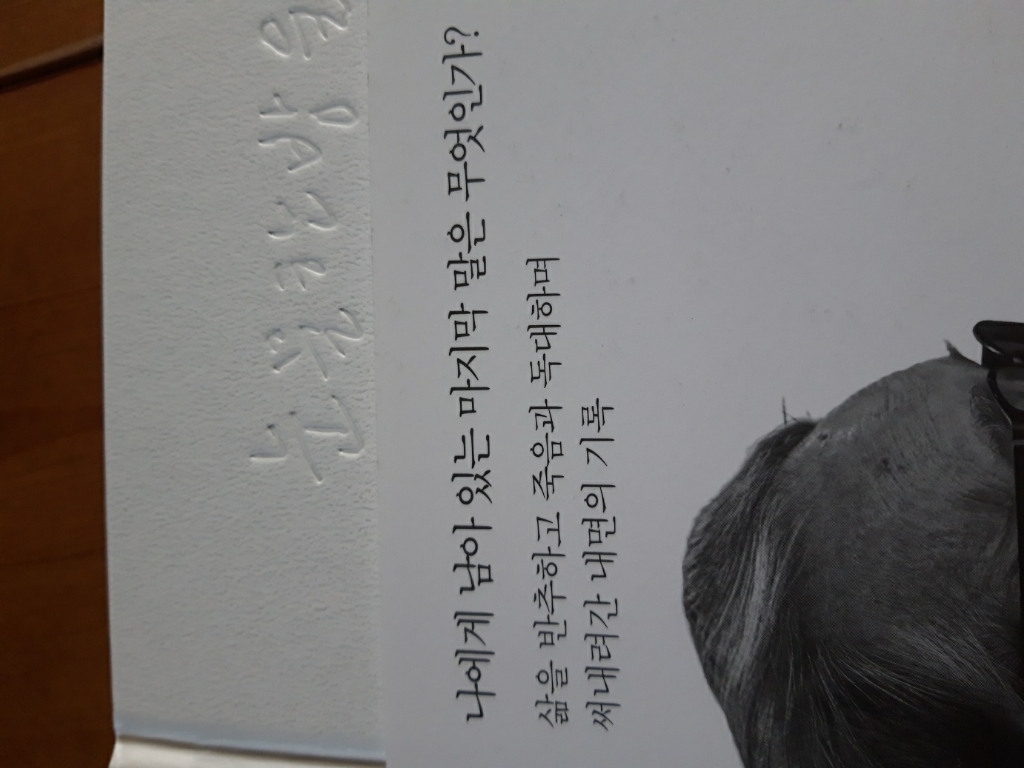 나에게 남아 있는 마지막 말은 무엇인가?
삶을 반추하고 죽음과 독대하며
써내려간 내면의 기록